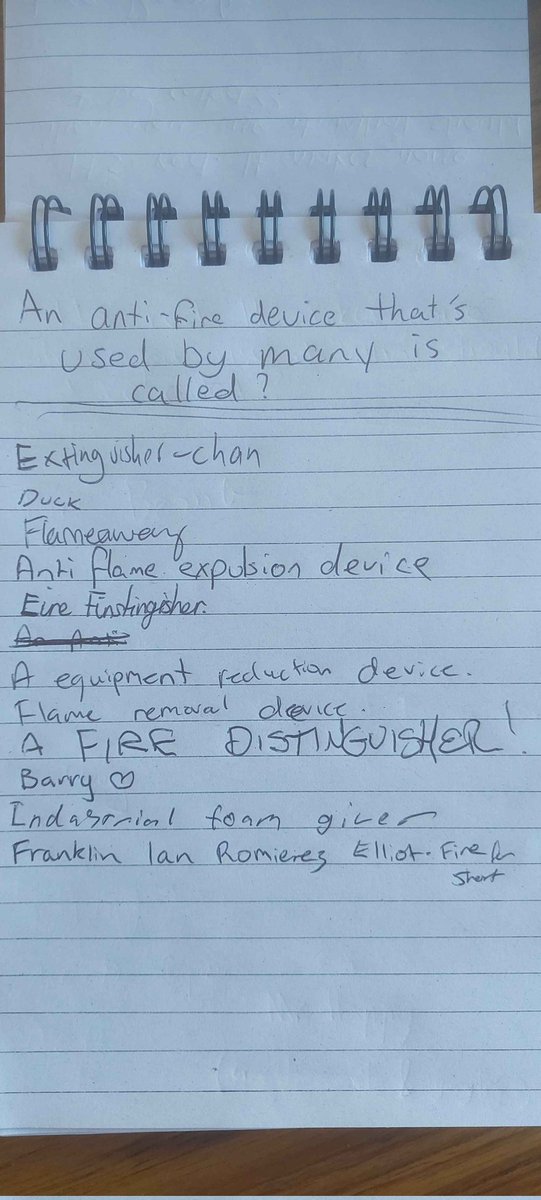 An anti-fire device that's
used by many is
called?
Extinguisher-chan
Duck
Flameaway
Anti flame expulsion device
Eire Finstingisher.
A equipment reduction device.
Flame removal device.
A FIRE DISTINGUISHER!
Barry ♡
Indasrnial foam giver
Franklin Ian Romierez Elliot. Fire for
Short